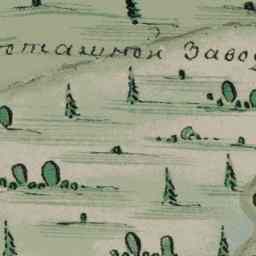 оташной Заво